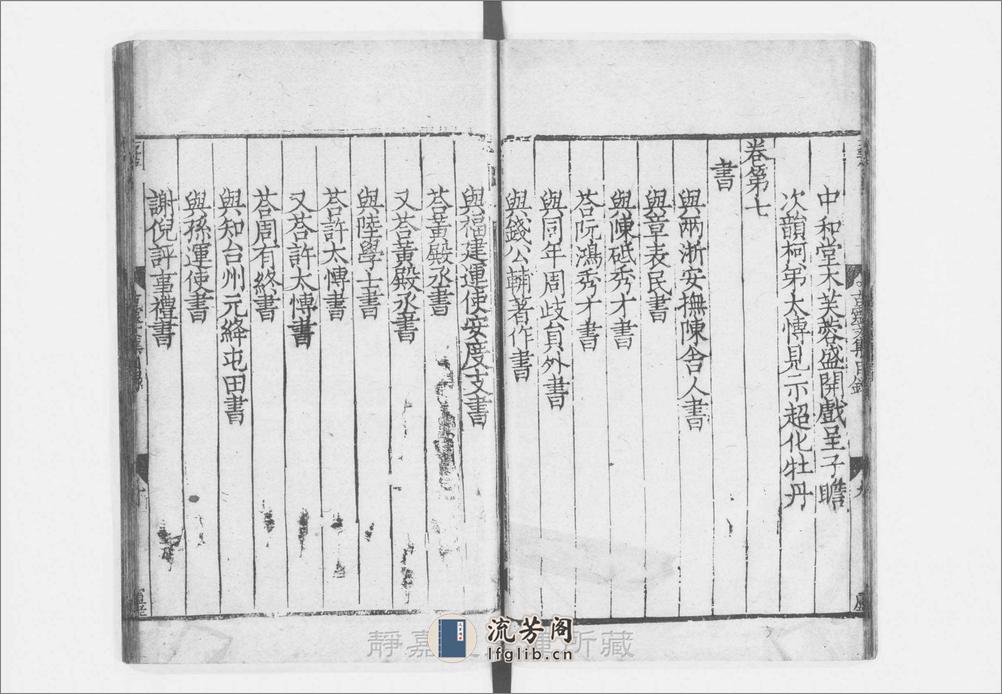 中和堂木芙蓉盛開戲呈子瞻
次韻柯弟太愽見示超化牡丹
卷第七
書
與兩淅安撫陳舍人書
與章表民書
與陳砥秀才書
荅阮鴻秀才書
與同年周歧貟外書
與錢公輔著作書
與福建運使安度支書
荅黃殿丞書
又荅黃殿丞書
與陸學士書
荅許太愽書
又荅許太愽書
荅周有終書
與知台州元絳屯田書
與孫運使書
謝倪評事禮書
靜嘉 所藏
流芳阁
lfglib.cn